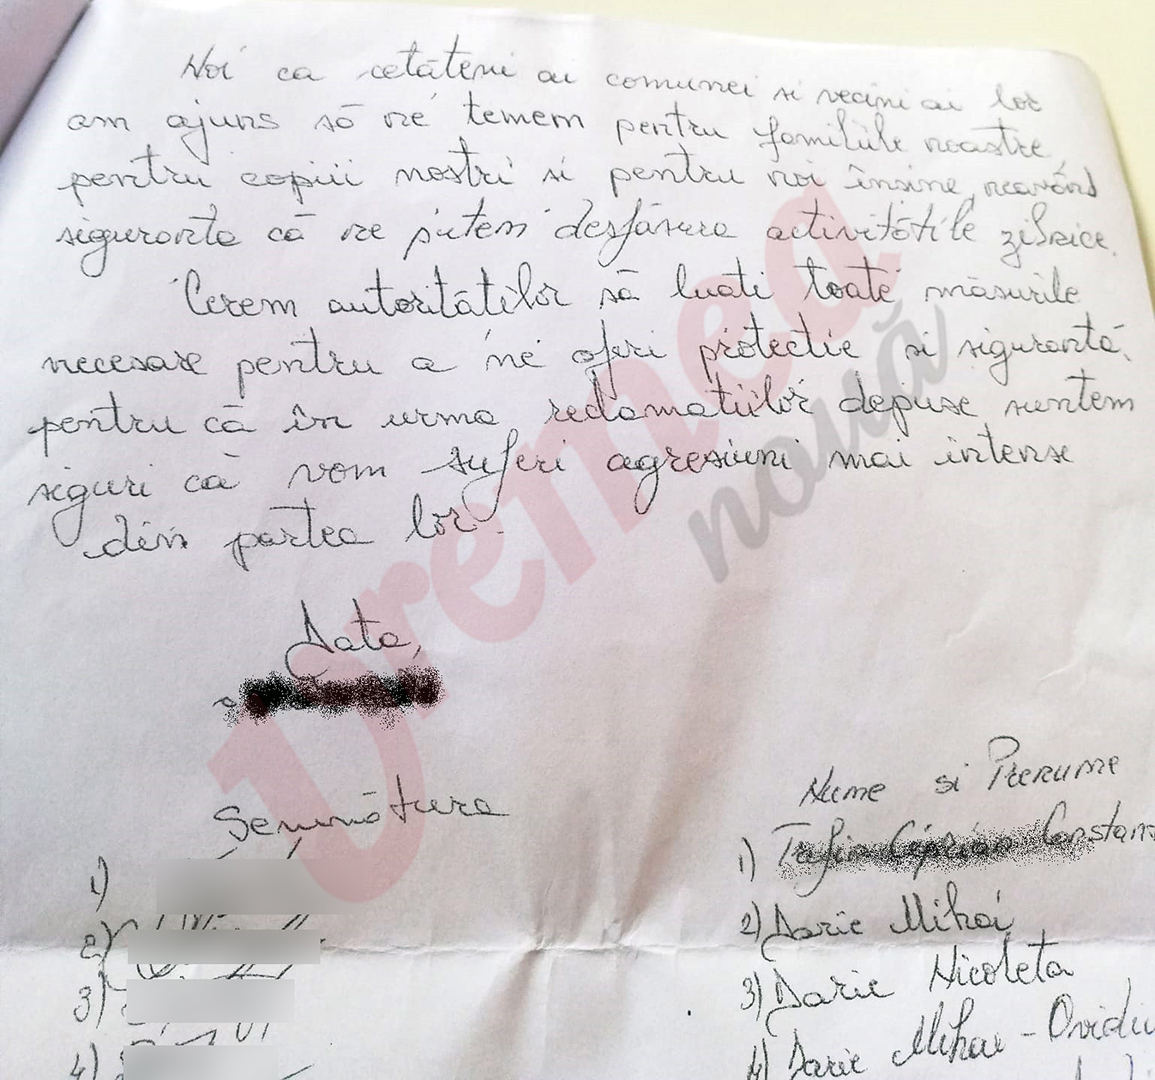 Noi ca cetăteni ai comunei si vecini ai lor
am ajuns să ne temem pentru familiile noastre,
pentru copiii nostri si pentru noi însine, neavând
siguranta că ne putem desfăsura activitătile zilnice.
Cerem autoritătilor să luati toate măsurile
necesare pentru a ne oferi protectie si sigurantă,
pentru că în urma reclamatiilor depuse suntem
siguri că vom suferi agresiuni mai intense
din partea lor.
Vremea
nouă
Data,
Semnătura
Nume si Prenume
1)
1) Constan
2)
2) Darie Mihai
3)
3) Darie Nicoleta
4)
4) Darie Mihai-Ovidiu